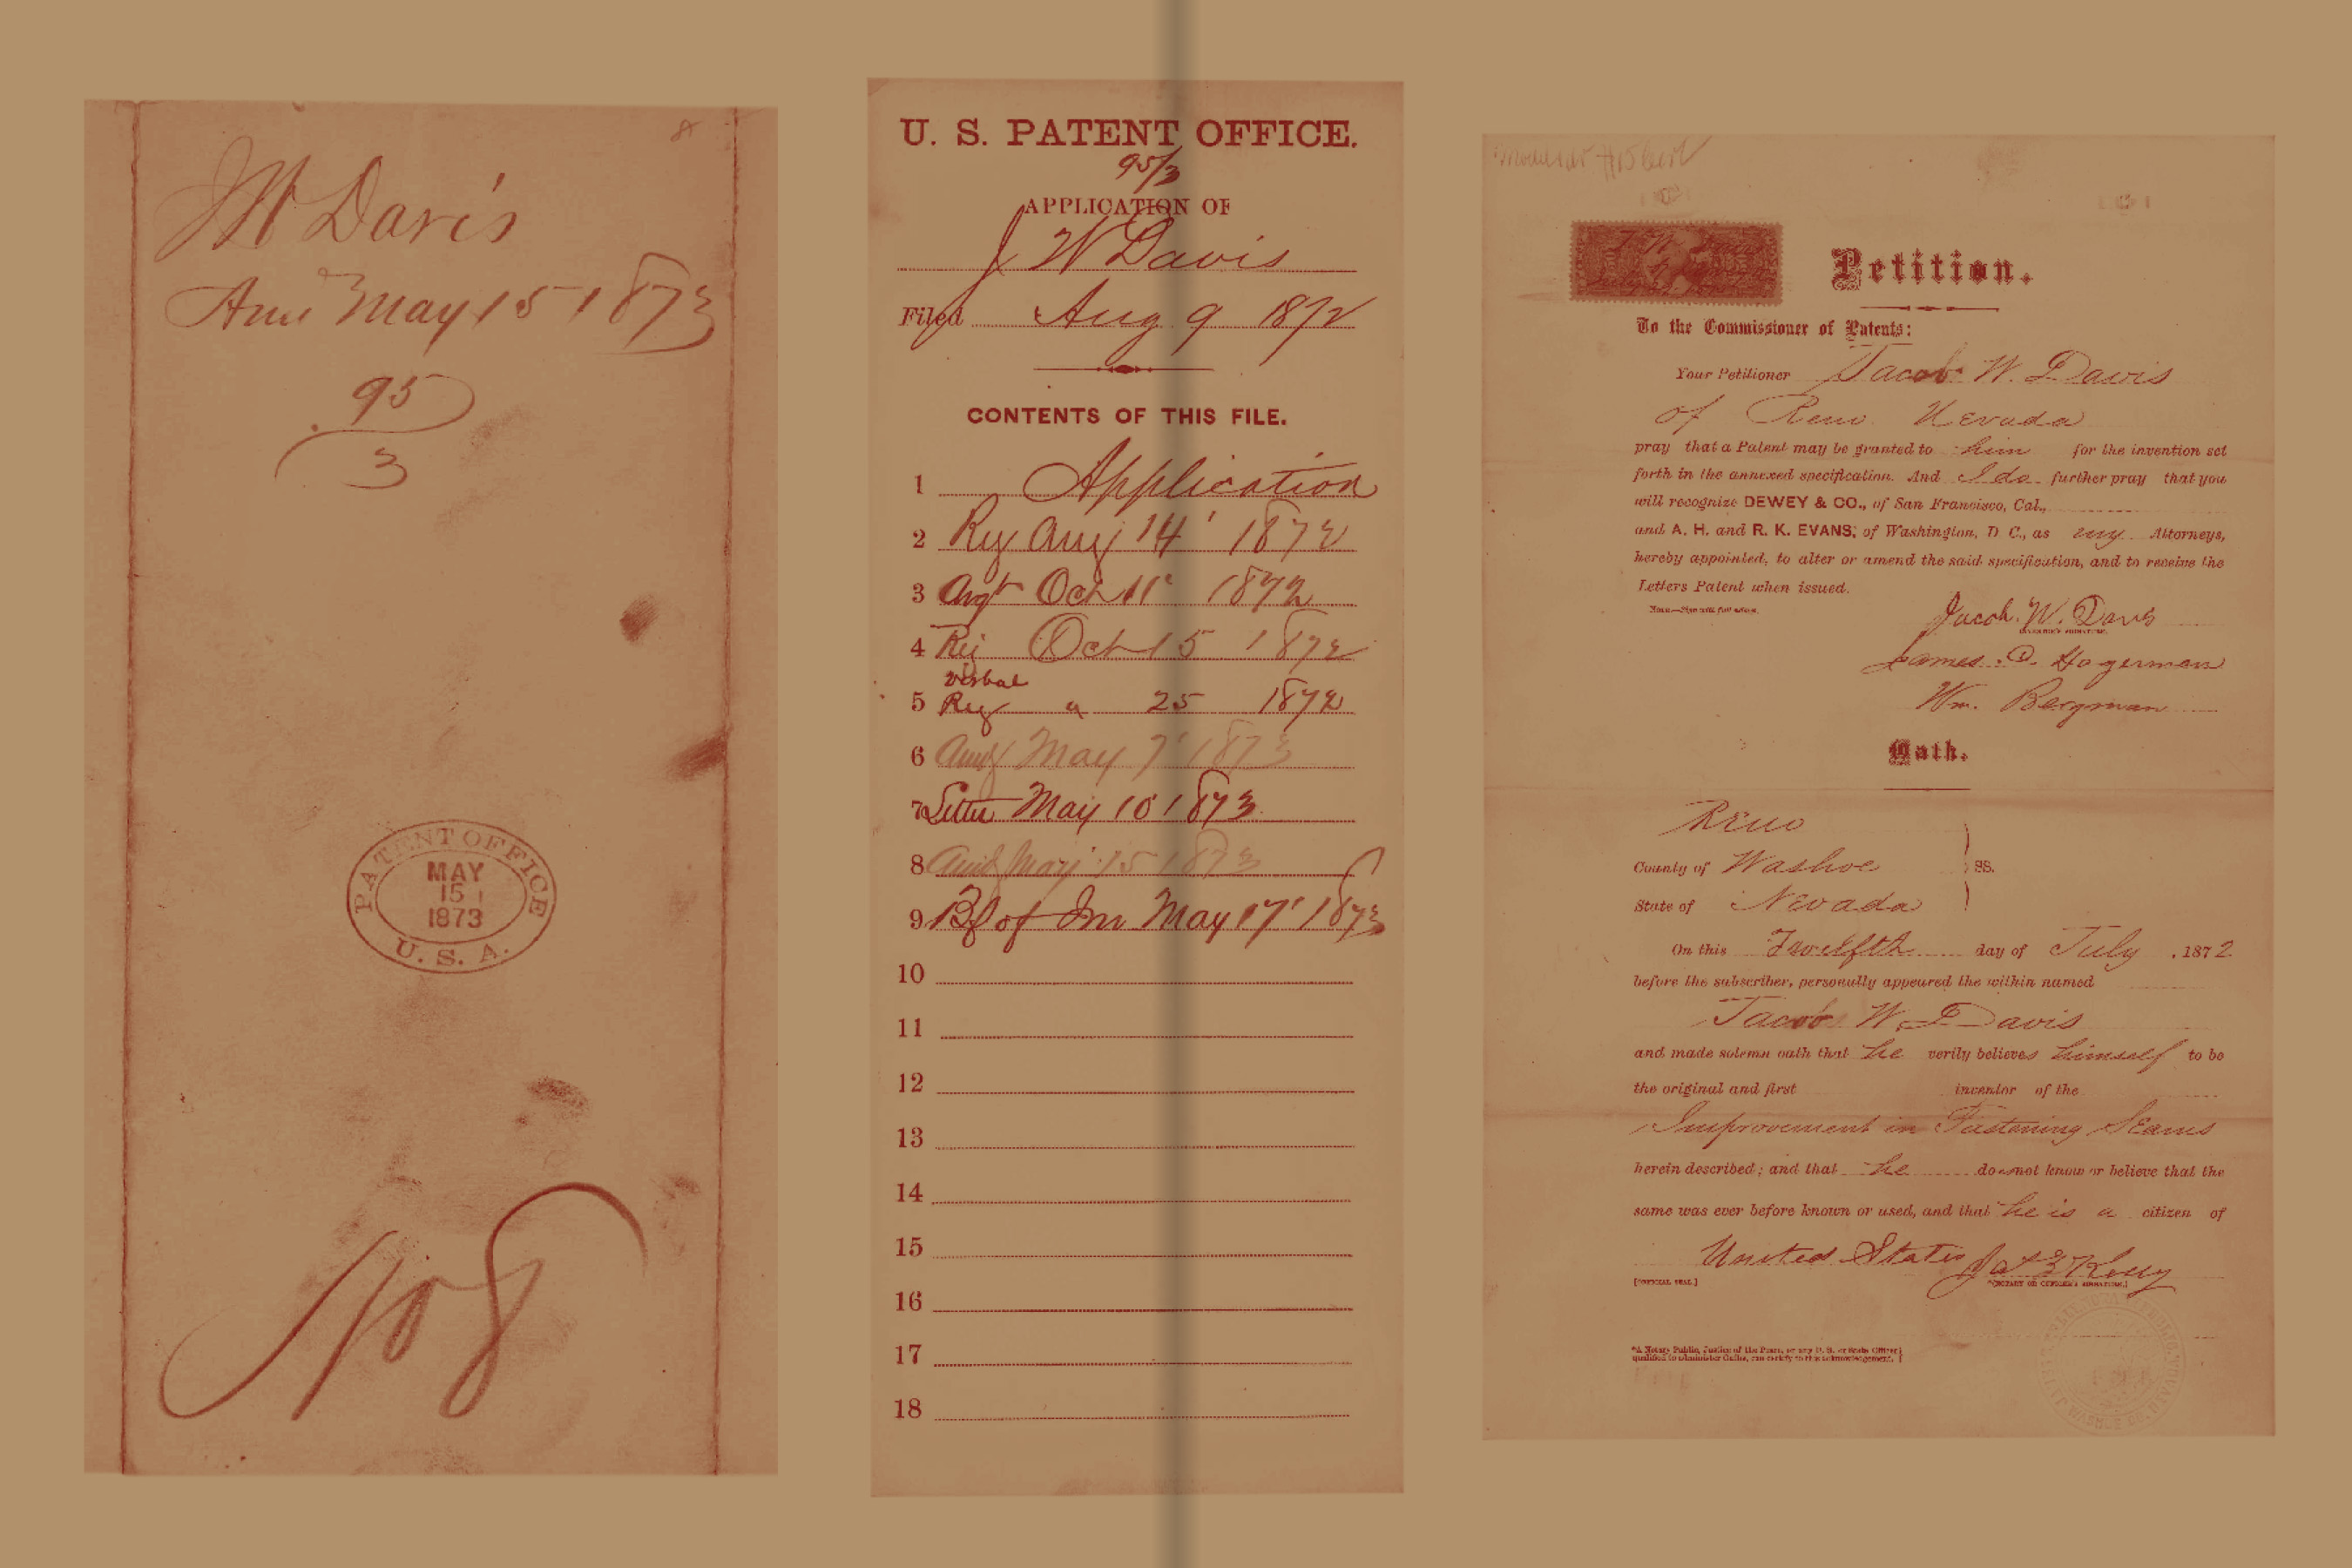 J W Davis
Am May 15 1873
95
3
PATENT OFFICE
MAY
15
1873
U. S. A.
No 8
U. S. PATENT OFFICE.
95/3
APPLICATION OF
J W Davis
Filed Aug 9 1872
CONTENTS OF THIS FILE.
1 Application
2 Rej Aug 14' 1872
3 Argt Oct 11' 1872
4 Rej Oct 15 1872
verbal
5 Rej " 25 1872
6 Amdt May 7' 1873
7 Letter May 10' 1873
8 Amdt May 15 1873
9 Bf of Inv May 17' 1873
10
11
12
13
14
15
16
17
18
J. W. Davis
Petition.
To the Commissioner of Patents:
Your Petitioner Jacob W. Davis
of Reno Nevada
pray that a Patent may be granted to him for the invention set
forth in the annexed specification. And I do further pray that you
will recognize DEWEY & CO., of San Francisco, Cal.,
and A. H. and R. K. EVANS, of Washington, D C., as my Attorneys,
hereby appointed, to alter or amend the said specification, and to receive the
Letters Patent when issued.
Note.—Sign with full name.
Jacob. W. Davis
INVENTOR'S SIGNATURE.
James. O. Hagerman
Wm. Bergman
Oath.
Reno
County of Washoe
State of Nevada
SS.
On this Twelfth day of July , 1872
before the subscriber, personally appeared the within named
Jacob W. Davis
and made solemn oath that he verily believes himself to be
the original and first inventor of the
Improvement in Fastening Seams
herein described; and that he does not know or believe that the
same was ever before known or used, and that he is a citizen of
United States
[OFFICIAL SEAL.]
*[NOTARY OR OFFICER'S SIGNATURE.]
*A Notary Public, Justice of the Peace, or any U. S. or State Officer
qualified to administer Oaths, can certify to this acknowledgement.